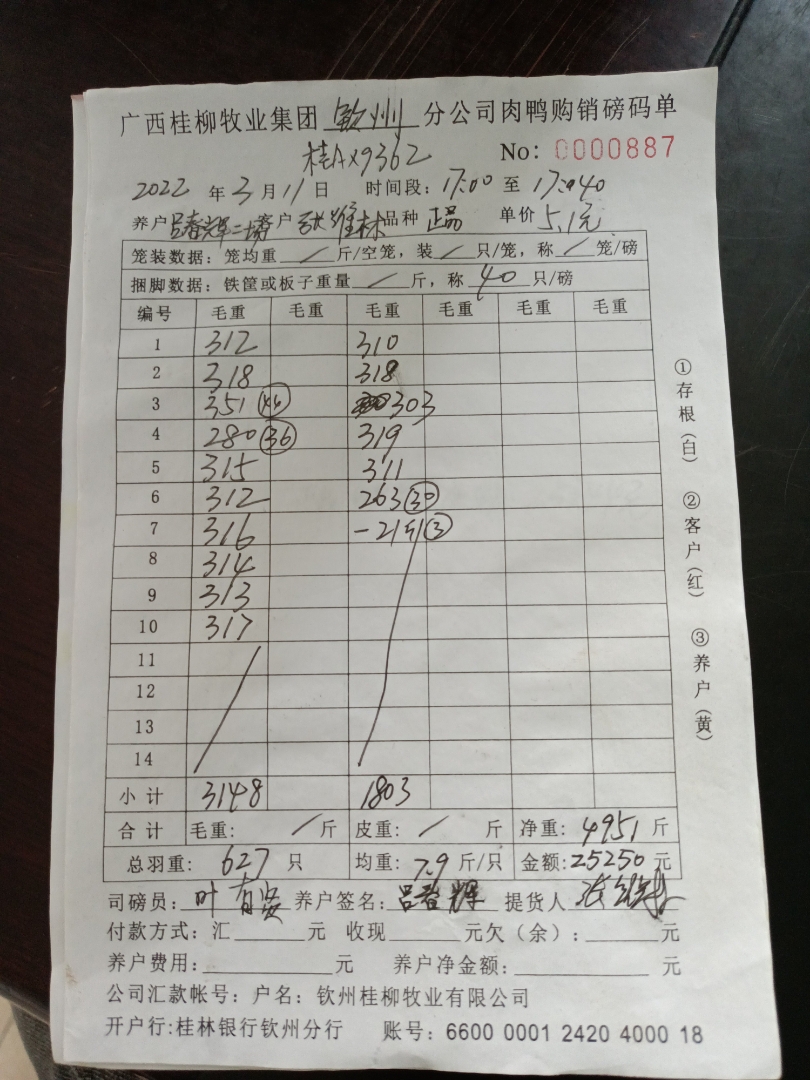 广西桂柳牧业集团 钦州 分公司肉鸭购销磅码单
桂AX9362 No: 0000887
2022 年 3 月 11 日 时间段: 17:00 至 17:40
养户 吕春辉二场 客户 张维林 品种 正品 单价 5.1元
笼装数据: 笼均重 / 斤/空笼, 装 / 只/笼, 称 / 笼/磅
捆脚数据: 铁筐或板子重量 / 斤, 称 40 只/磅
编号 毛重 毛重 毛重 毛重 毛重 毛重
1 312 310
2 318 318
3 351 (44) 303
4 280 (36) 319
5 315 311
6 312 263 (30)
7 316 -21 (3)
8 314
9 313
10 317
11
12
13
14
小计 3148 1803
合计 毛重: / 斤 皮重: / 斤 净重: 4951 斤
总羽重: 627 只 均重: 7.9 斤/只 金额: 25250 元
司磅员: 叶 养户签名: 吕春辉 提货人 张维林
付款方式: 汇 元 收现 元 欠(余): 元
养户费用: 元 养户净金额: 元
公司汇款帐号: 户名: 钦州桂柳牧业有限公司
开户行:桂林银行钦州分行 账号: 6600 0001 2420 4000 18
①存根(白) ②客户(红) ③养户(黄)